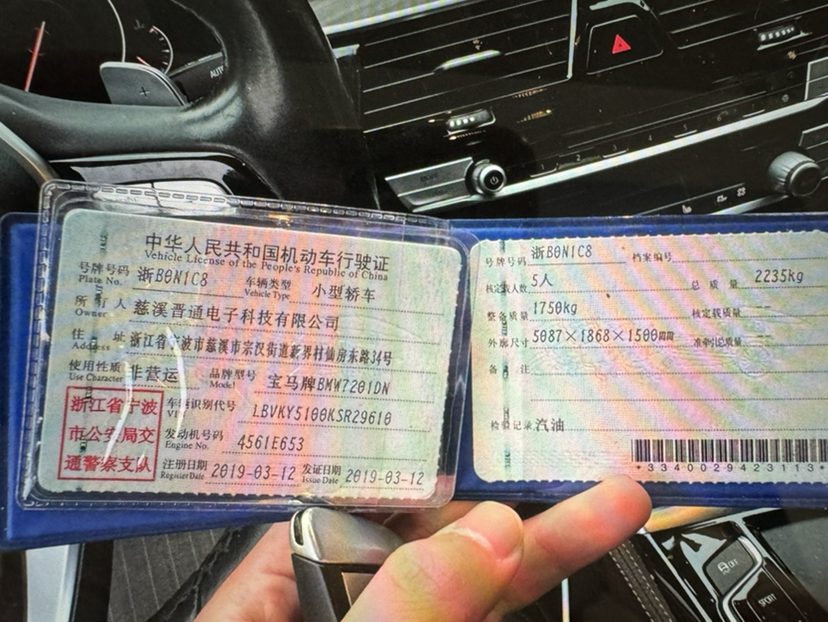 中华人民共和国机动车行驶证
Vehicle License of the People's Republic of China
号牌号码 浙B0N1C8 车辆类型 小型轿车
Plate No. Vehicle Type
所有人 慈溪晋通电子科技有限公司
Owner
住址 浙江省宁波市慈溪市宗汉街道新界村仙房东路34号
Address
使用性质 非营运 品牌型号 宝马牌BMW7201DN
Use Character Model
浙江省宁波
市公安局交
通警察支队
车辆识别代号 LBVKY5100KSR29610
VIN
发动机号码 4561E653
Engine No.
注册日期 2019-03-12 发证日期 2019-03-12
Register Date Issue Date
号牌号码 浙B0N1C8 档案编号
核定载人数 5人 总质量 2235kg
整备质量 1750kg 核定载质量 --
外廓尺寸 5087×1868×1500mm 准牵引总质量 --
备注
检验记录 汽油
*3340029423113*
AUTO
+
OFF
SPORT